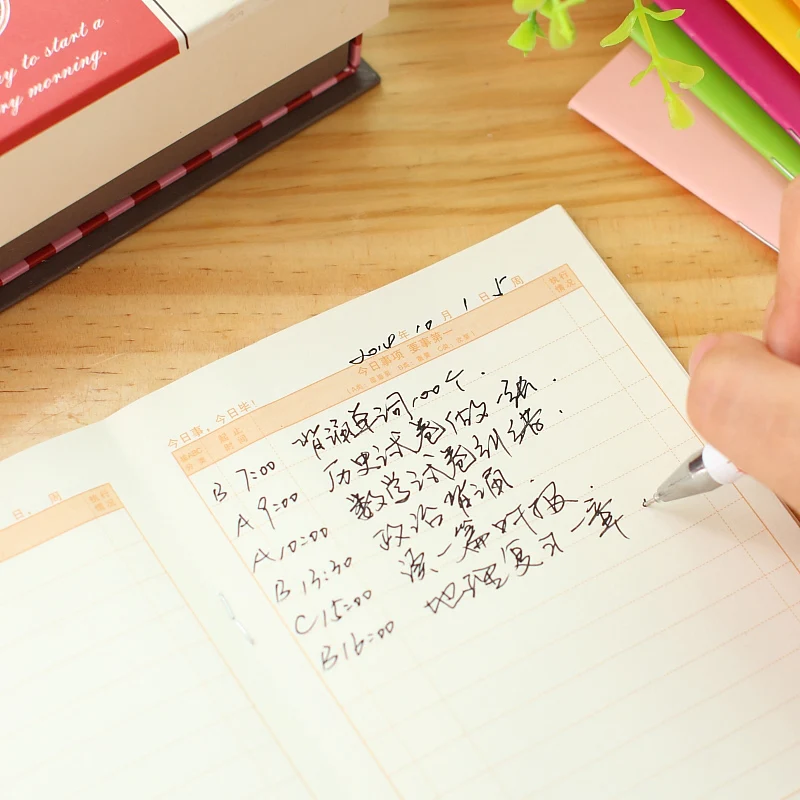 y to start a
ry morning.
2014年10月1日5周
今日事，今日毕！
今日事项 要事第一
执行情况
起止时间
B 7:00 背诵单词100个.
A 9:00 历史试卷做一张.
A 10:00 数学试卷训练.
B 13:30 政治背诵.
C 15:00 读一篇时报.
B 16:00 地理复习一章
日, 周
执行情况